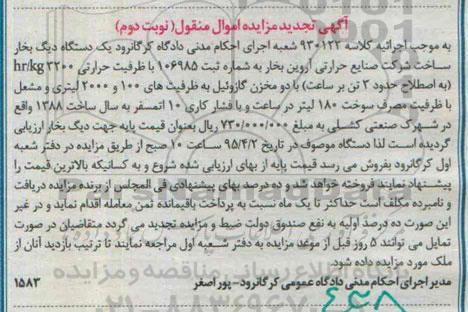 آگهی تجدید مزایده اموال منقول( نوبت دوم)
به موجب اجرائیه کلاسه ۹۳۰۱۲۲ شعبه اجرای احکام مدنی دادگاه کرگانرود یک دستگاه دیگ بخار
ساخت شرکت صنایع حرارتی آروین بخار به شماره ثبت ۱۰۶۹۸۵ با ظرفیت حرارتی ۳۲۰۰ hr/kg
(به اصطلاح حدود ۳ تن بر ساعت) با دو مخزن گازوئیل به ظرفیت های ۱۰۰ و ۲۰۰۰ لیتری و مشعل
با ظرفیت مصرف سوخت ۱۸۰ لیتر در ساعت و با فشار کاری ۱۰ اتمسفر به سال ساخت ۱۳۸۸ واقع
در شهرک صنعتی کشلی به مبلغ ۷۳۰/۰۰۰/۰۰۰ ریال بعنوان قیمت پایه جهت دیگ بخار ارزیابی
گردیده است لذا دستگاه موصوف در تاریخ ۹۵/۴/۲ ساعت ۱۰ صبح از طریق مزایده در دفتر شعبه
اول کرگانرود بفروش می رسد قیمت پایه از بهای ارزیابی شده شروع و به کسانیکه بالاترین قیمت را
پیشنهاد نمایند فروخته خواهد شد و ده درصد بهای پیشنهادی فی المجلس از برنده مزایده دریافت
و نامبرده مکلف است حداکثر تا یک ماه نسبت به پرداخت باقیمانده ثمن معامله اقدام نماید و در غیر
این صورت ده درصد اولیه به نفع صندوق دولت ضبط و مزایده تجدید می گردد متقاضیان در صورت
تمایل می توانند ۵ روز قبل از موعد مزایده به دفتر شعبه اول مراجعه نمایند تا ترتیب بازدید آنان از
ملک مورد مزایده داده شود.
مدیر اجرای احکام مدنی دادگاه عمومی کرگانرود- پور اصغر ۱۵۸۳
پایگاه اطلاع رسانی مناقصه و مزایده
۰۲۱-۸۸۳۴۹۶۷۰